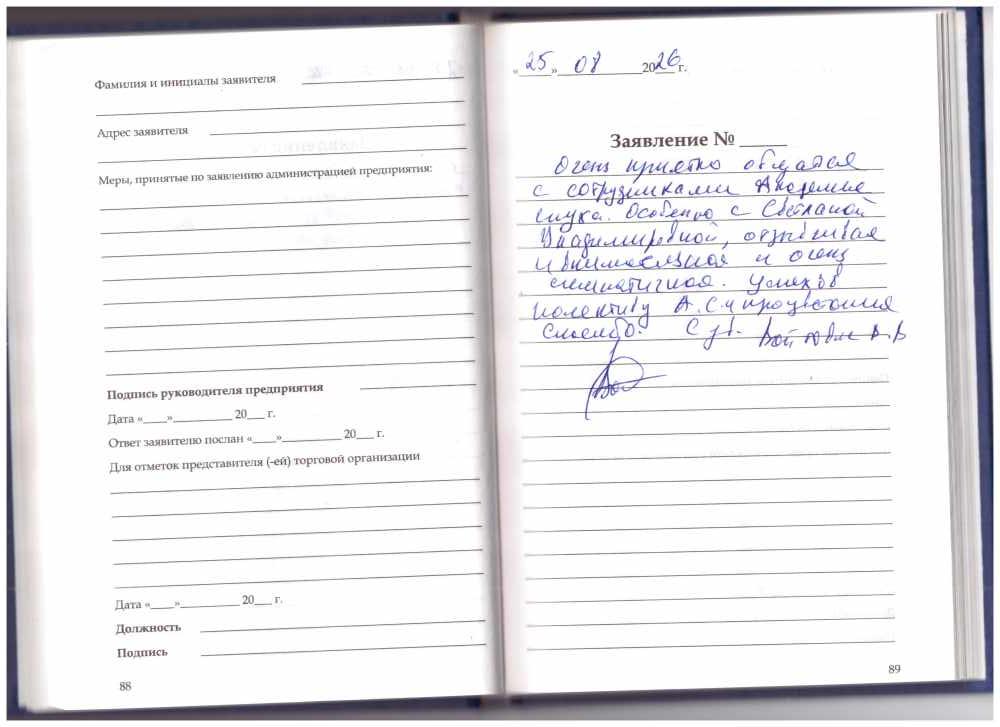 Фамилия и инициалы заявителя
Адрес заявителя
Меры, принятые по заявлению администрацией предприятия:
Подпись руководителя предприятия
Дата «___»__________ 20___ г.
Ответ заявителю послан «____»__________ 20___ г.
Для отметок представителя (-ей) торговой организации
Дата «____»__________ 20___ г.
Должность
Подпись
88
«25» 08 2026 г.
Заявление № ____
Очень приятно общатся
с сотрудниками Академие
слуха. Особенно с Светланой
Владимировной, отзывчивая
и внимательная и очень
симпатичная. Успехов
колективу А.С. и процветания
Спасибо. С ув. Войтович В.В
89